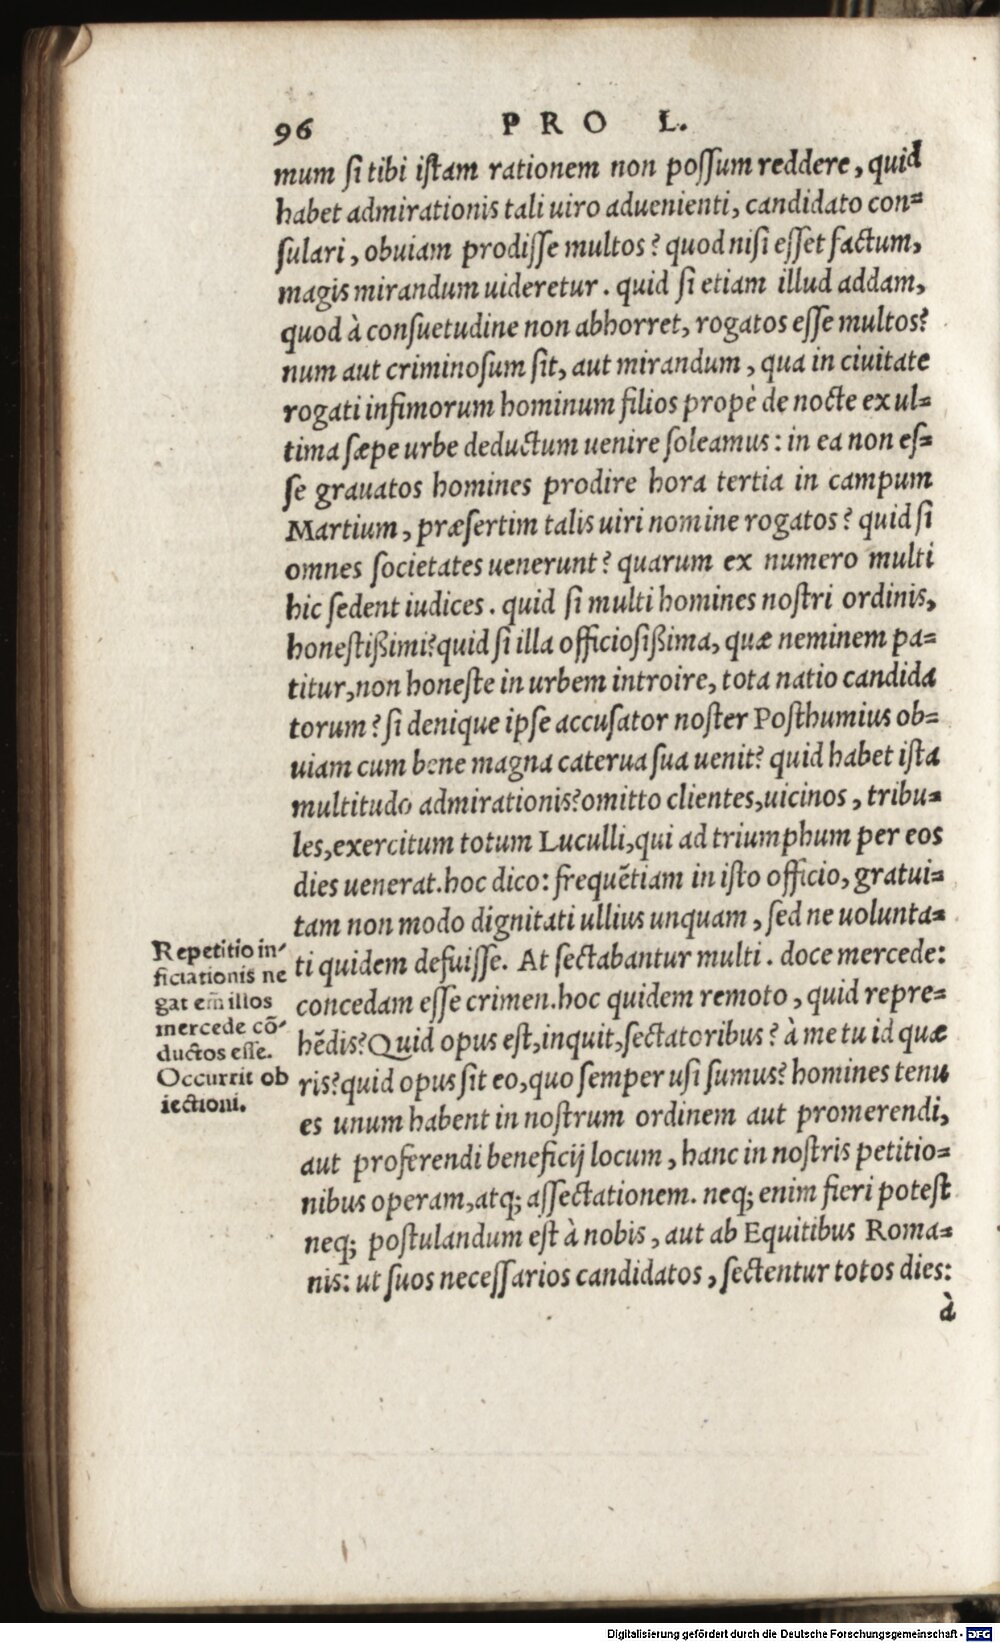 96 PRO L.
mum ſi tibi iſtam rationem non poſſum reddere, quid
habet admirationis tali uiro aduenienti, candidato con=
ſulari, obuiam prodiſſe multos? quod niſi eſſet factum,
magis mirandum uideretur. quid ſi etiam illud addam,
quod à conſuetudine non abhorret, rogatos eſſe multos?
num aut criminoſum ſit, aut mirandum, qua in ciuitate
rogati infimorum hominum filios propè de nocte ex ul=
tima ſæpe urbe deductum uenire ſoleamus: in ea non eſ=
ſe grauatos homines prodire hora tertia in campum
Martium, præſertim talis uiri nomine rogatos? quid ſi
omnes ſocietates uenerunt? quarum ex numero multi
hic ſedent iudices. quid ſi multi homines noſtri ordinis,
honeſtißimi? quid ſi illa officioſißima, quæ neminem pa=
titur, non honeſte in urbem introire, tota natio candida
torum? ſi denique ipſe accuſator noſter Poſthumius ob=
uiam cum bene magna caterua ſua uenit? quid habet iſta
multitudo admirationis? omitto clientes, uicinos, tribu=
les, exercitum totum Luculli, qui ad triumphum per eos
dies uenerat. hoc dico: frequẽtiam in iſto officio, gratui=
tam non modo dignitati ullius unquam, ſed ne uolunta=
ti quidem defuiſſe. At ſectabantur multi. doce mercede:
concedam eſſe crimen. hoc quidem remoto, quid repre=
hẽdis? Quid opus eſt, inquit, ſectatoribus? à me tu id quæ
ris? quid opus ſit eo, quo ſemper uſi ſumus? homines tenu
es unum habent in noſtrum ordinem aut promerendi,
aut proferendi beneficij locum, hanc in noſtris petitio=
nibus operam, atq; aſſectationem. neq; enim fieri poteſt
neq; poſtulandum eſt à nobis, aut ab Equitibus Roma=
nis: ut ſuos neceſſarios candidatos, ſectentur totos dies:
à
Repetitio in-
ficiationis ne
gat em̃ illos
mercede cõ-
ductos eſſe.
Occurrit ob
iectioni.
Digitalisierung gefördert durch die Deutsche Forschungsgemeinschaft - DFG